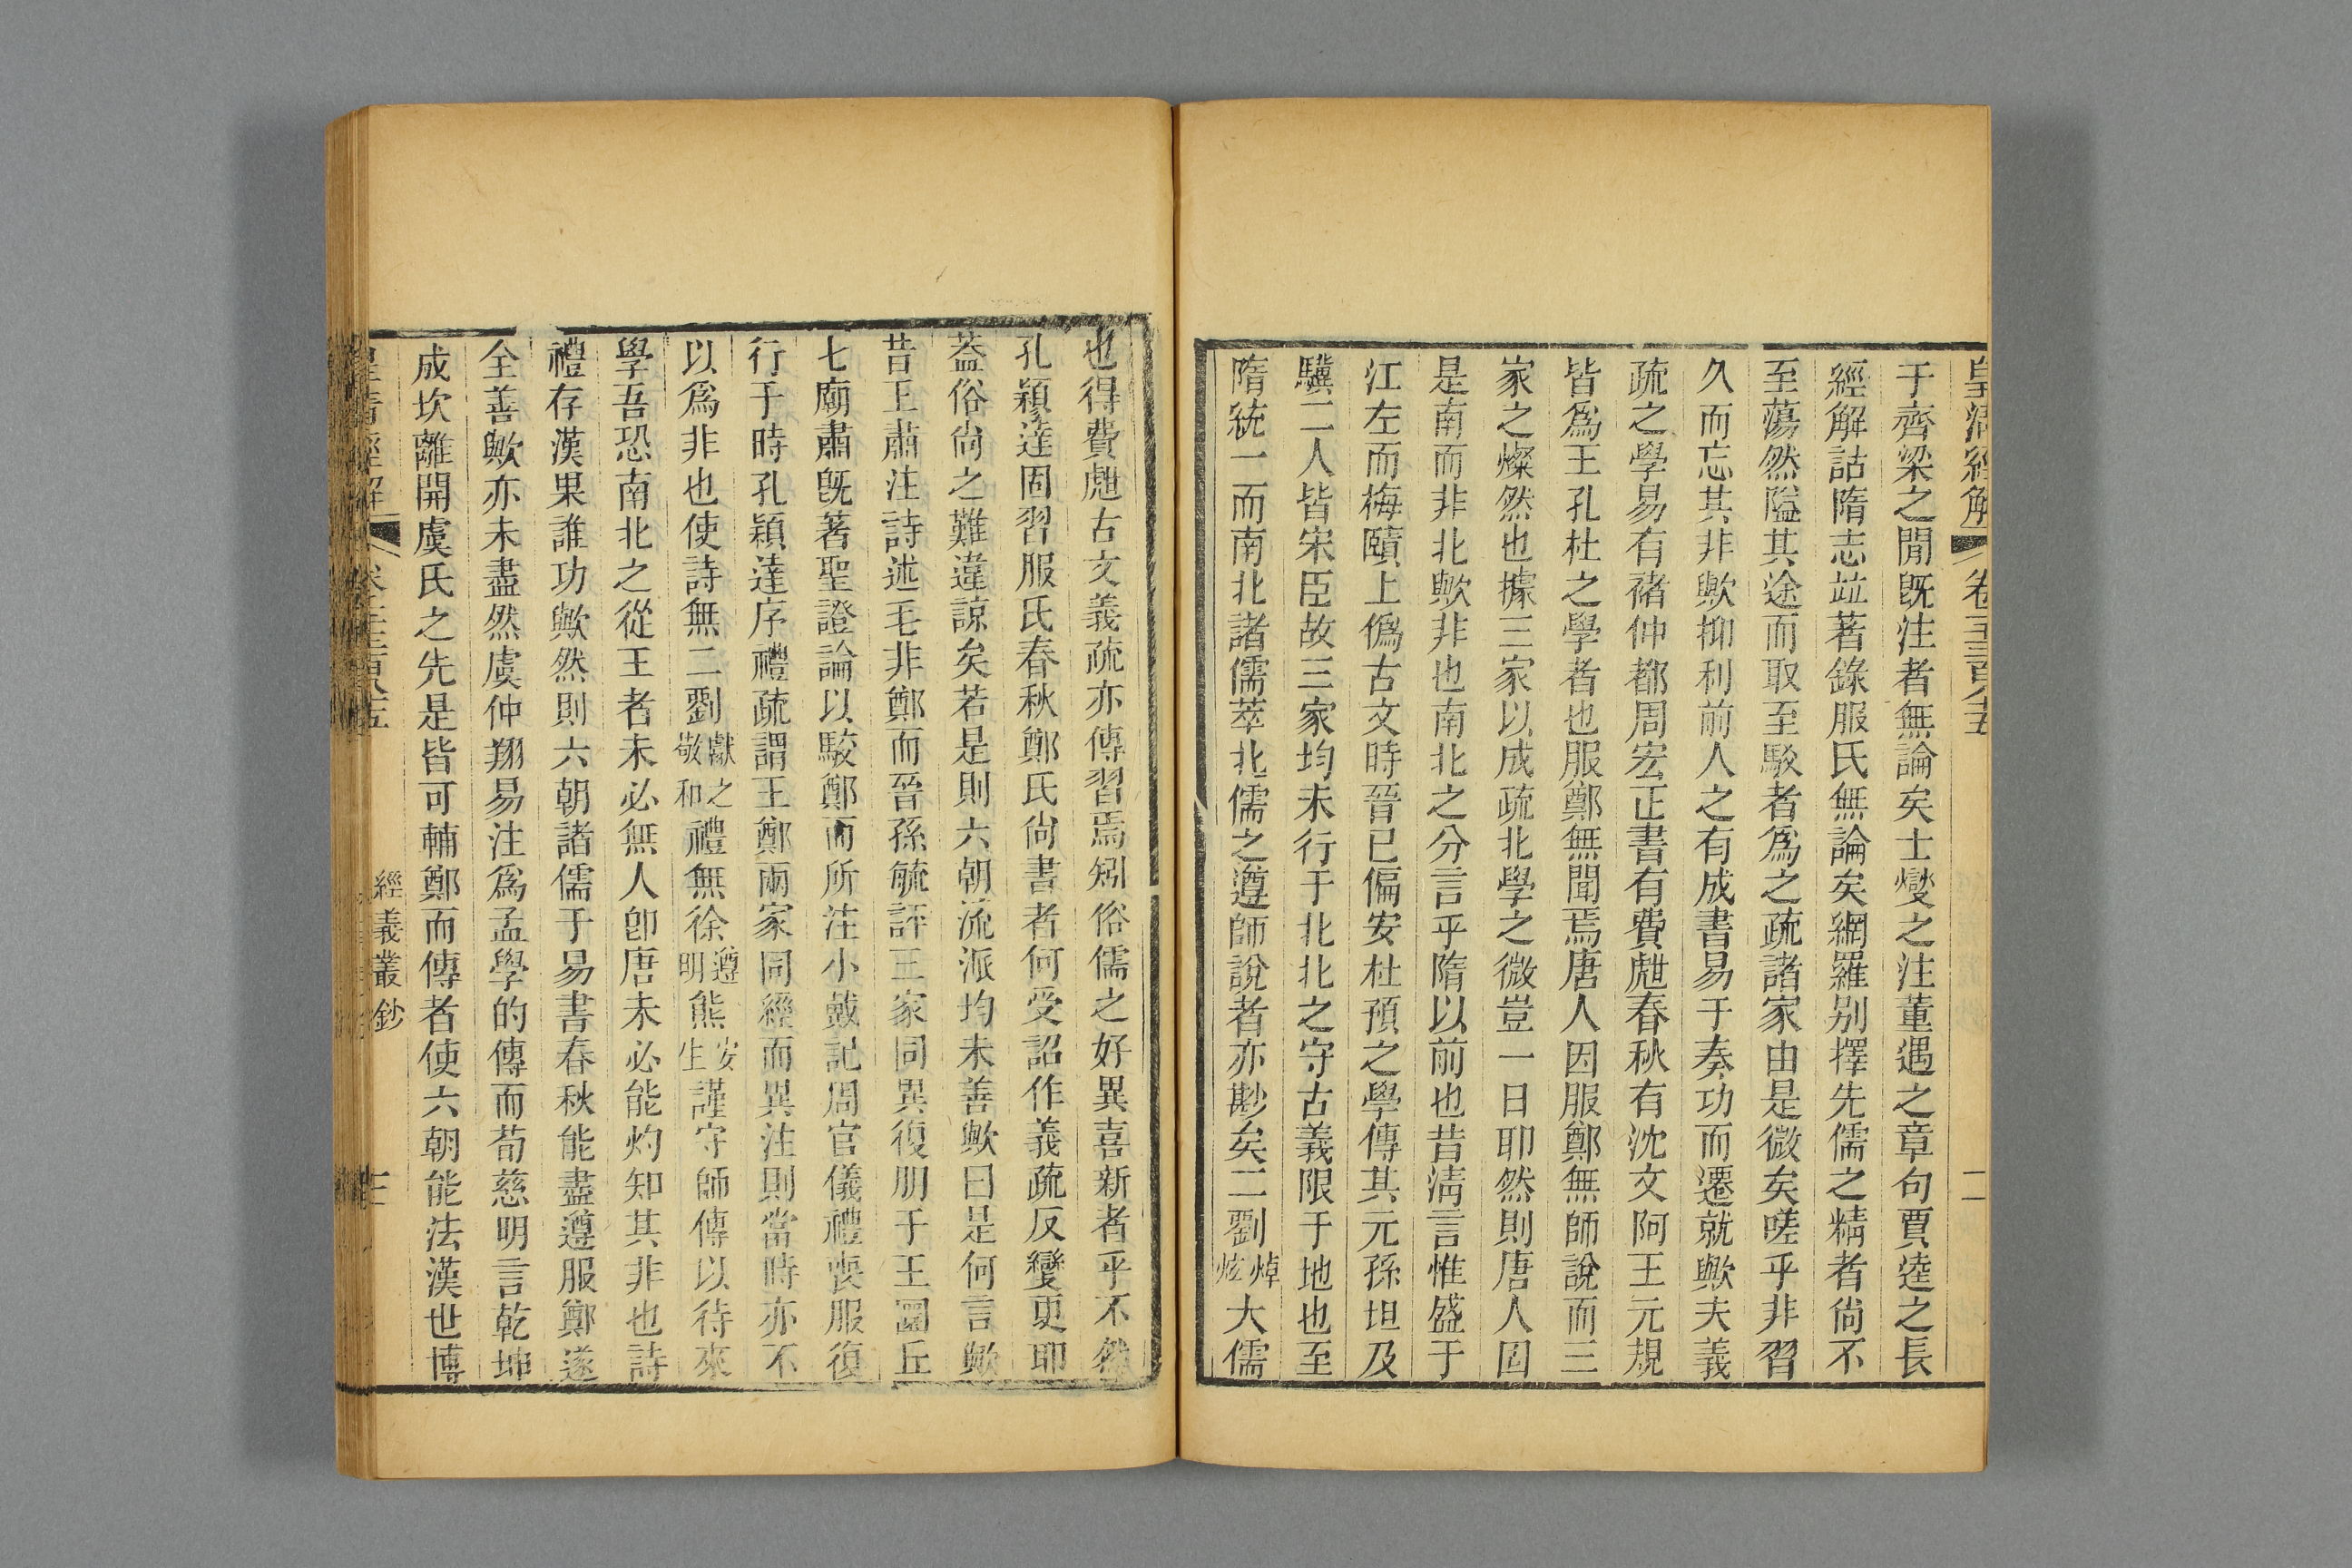 皇清經解 卷一千三百八十五 二
于齊梁之閒既注者無論矣士燮之注董遇之章句賈逵之長
經解詁隋志竝著錄服氏無論矣網羅别擇先儒之精者尙不
至蕩然隘其途而取至駁者爲之疏諸家由是微矣嗟乎非習
久而忘其非歟抑利前人之有成書易于奏功而遷就歟夫義
疏之學易有褚仲都周宏正書有費甝春秋有沈文阿王元規
皆爲王孔杜之學者也服鄭無聞焉唐人因服鄭無師說而三
家之燦然也據三家以成疏北學之微豈一日耶然則唐人固
是南而非北歟非也南北之分言乎隋以前也昔淸言惟盛于
江左而梅賾上僞古文時晉已偏安杜預之學傳其元孫坦及
驥二人皆宋臣故三家均未行于北北之守古義限于地也至
隋統一而南北諸儒萃北儒之遵師說者亦尠矣二劉焯炫大儒
也得費甝古文義疏亦傳習焉矧俗儒之好異喜新者乎不然
孔穎達固習服氏春秋鄭氏尙書者何受詔作義疏反變更耶
葢俗尙之難違諒矣若是則六朝流派均未善歟曰是何言歟
昔王肅注詩述毛非鄭而晉孫毓評三家同異復朋于王圜丘
七廟肅既著聖證論以駮鄭而所注小戴記周官儀禮喪服復
行于時孔穎達序禮疏謂王鄭兩家同經而異注則當時亦不
以爲非也使詩無二劉獻之敬和禮無徐遵明熊安生謹守師傳以待來
學吾恐南北之從王者未必無人卽唐未必能灼知其非也詩
禮存漢果誰功歟然則六朝諸儒于易書春秋能盡遵服鄭遂
全善歟亦未盡然虞仲翔易注爲孟學的傳而荀慈明言乾坤
成坎離開虞氏之先是皆可輔鄭而傳者使六朝能法漢世博
皇清經解 經義叢鈔